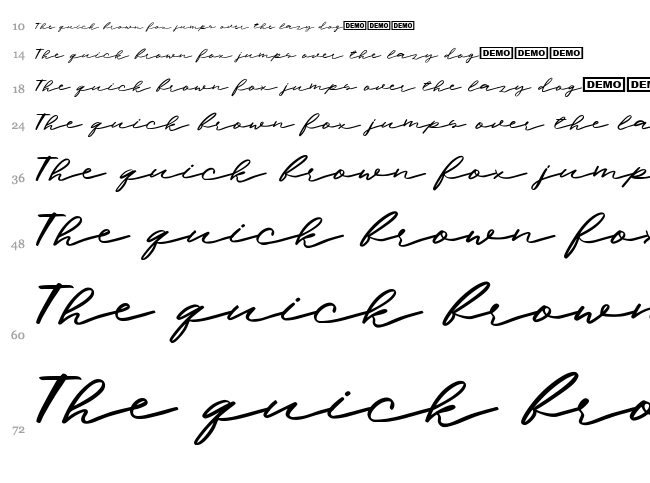 10 The quick brown fox jumps over the lazy dog DEMO DEMO DEMO
14 The quick brown fox jumps over the lazy dog DEMO DEMO DEMO
18 The quick brown fox jumps over the lazy dog DEMO DEM
24 The quick brown fox jumps over the la
36 The quick brown fox jump
48 The quick brown fox
60 The quick brown
72 The quick bro